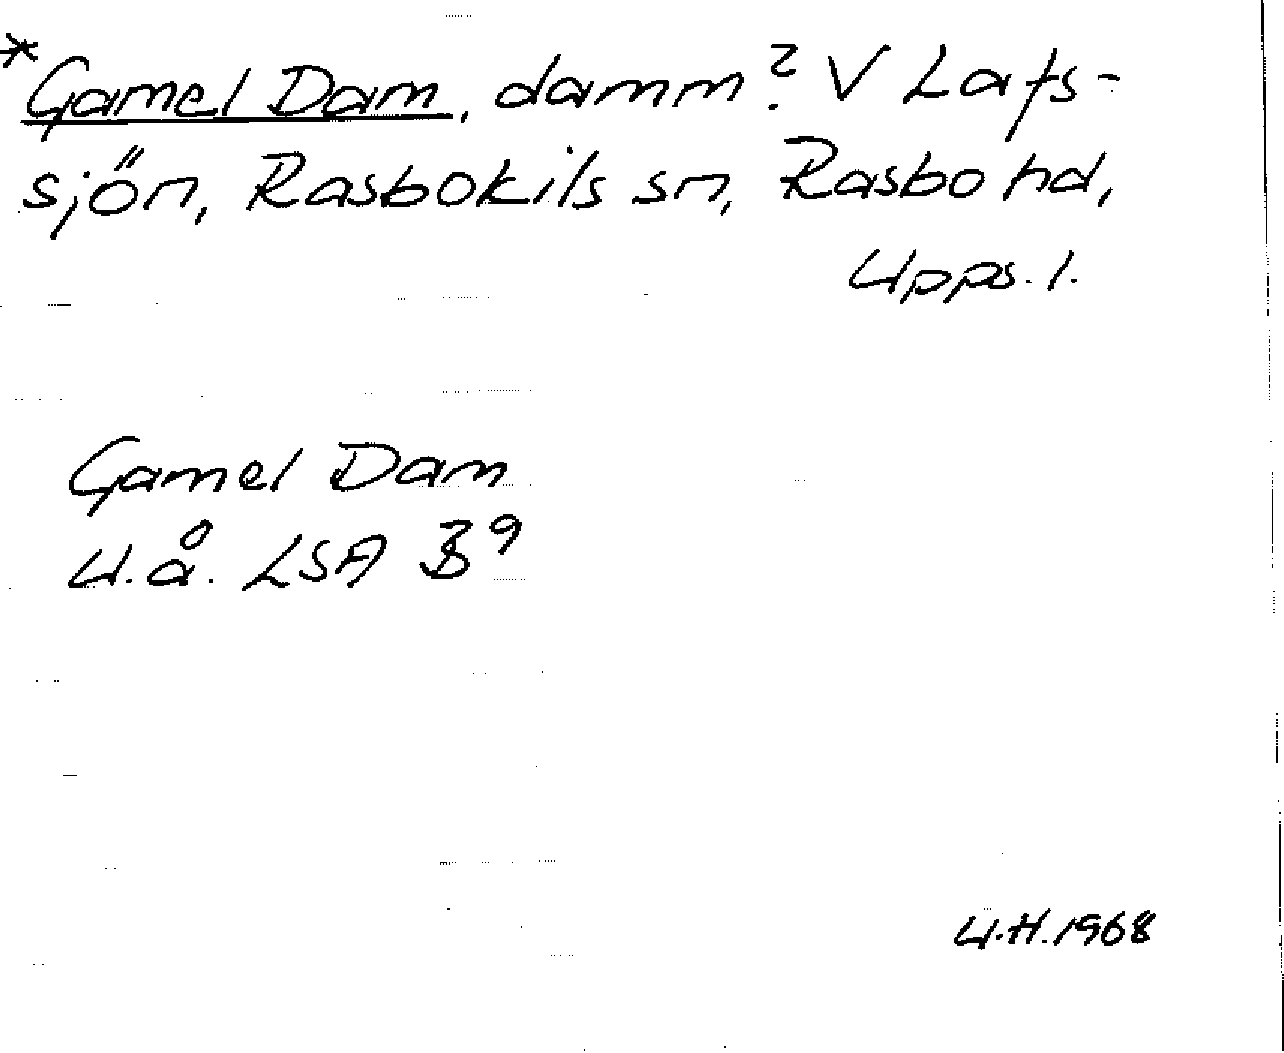 *Gamel Dam, damm? V Lafs-
sjön, Rasbokils sn, Rasbo hd,
Upps. l.
Gamel Dam
U.å. LSA B⁹
U.H. 1968